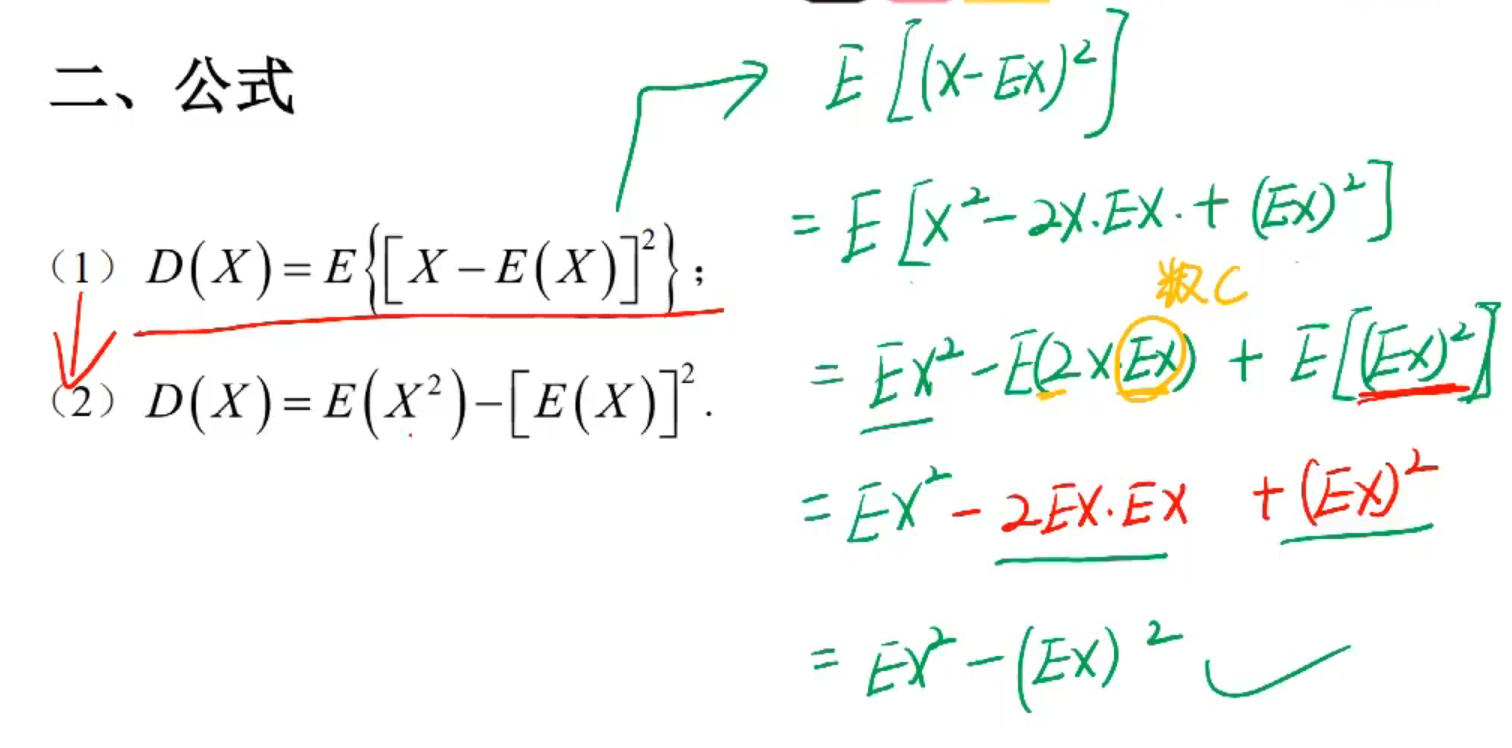 二、公式
(1) D(X)=E{[X-E(X)]²};
(2) D(X)=E(X²)-[E(X)]².
E[(X-EX)²]
=E[X²-2X·EX·+(EX)²]
C
=EX²-E(2XEX)+E[(EX)²]
=EX²-2EX·EX+(EX)²
=EX²-(EX)²